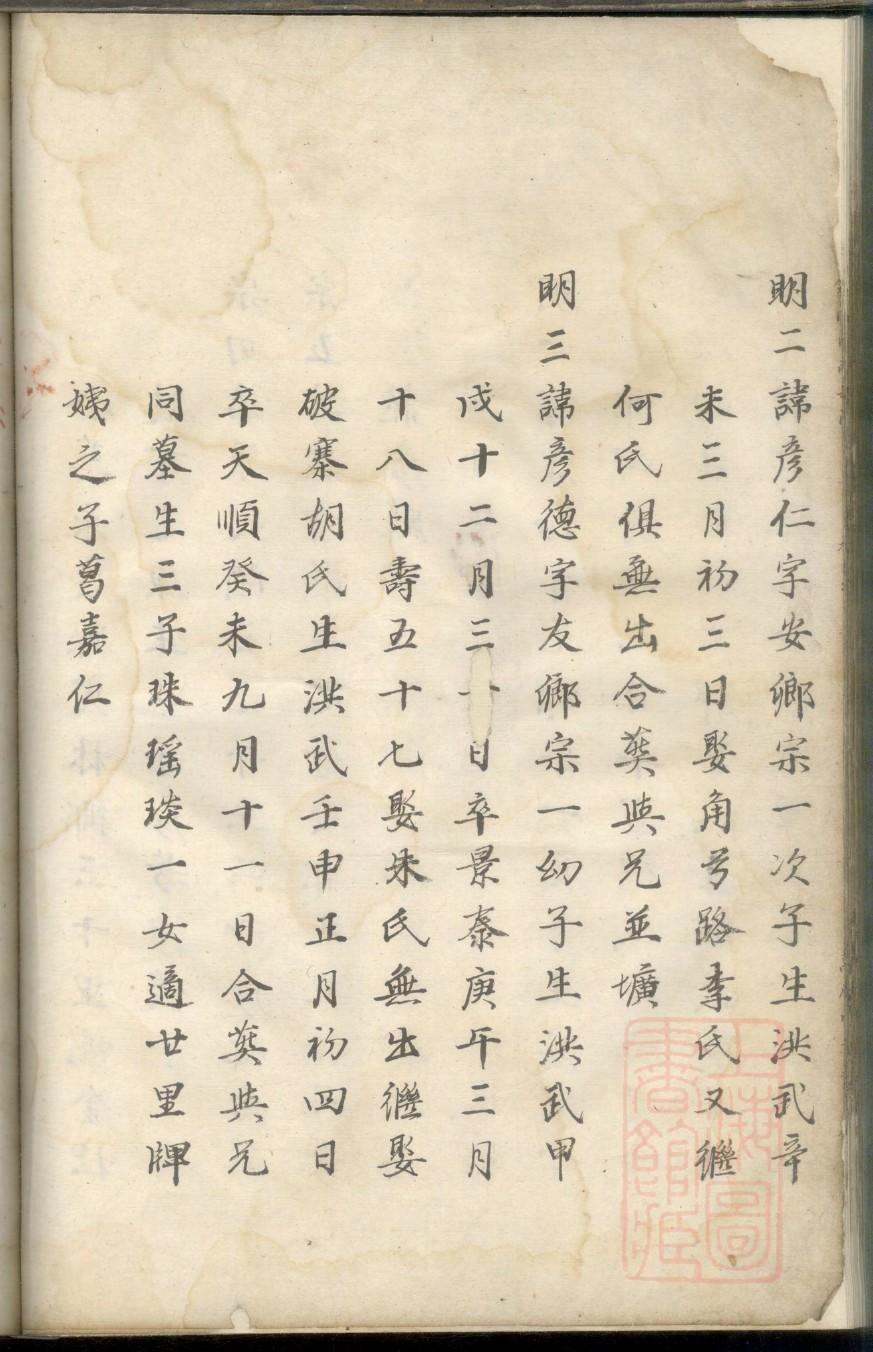 明二諱彥仁字安鄉宗一次子生洪武辛
未三月初三日娶角弓路李氏又繼
何氏俱無出合葬與兄並壙
明三諱彥德字友鄉宗一幼子生洪武甲
戌十二月三十日卒景泰庚午三月
十八日壽五十七娶朱氏無出繼娶
破寨胡氏生洪武壬申正月初四日
卒天順癸未九月十一日合葬與兄
同墓生三子珠瑶琰一女適廿里牌
姨之子葛嘉仁
上海圖
書館藏